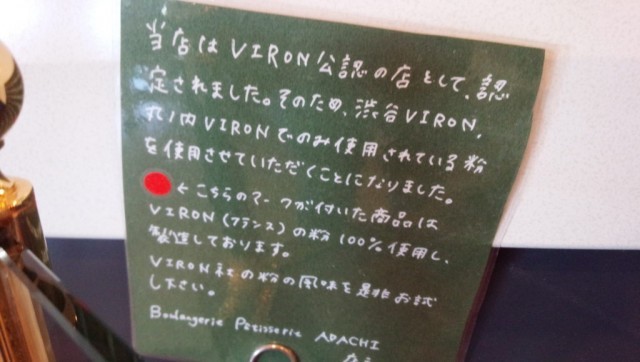 当店はVIRON公認の店として、認
定されました。そのため、渋谷VIRON,
丸ノ内VIRONでのみ使用されている粉
を使用させていただくことになりました。
←こちらのマークが付いた商品は
VIRON(フランス)の粉100%使用し、
製造しております。
VIRON社の粉の風味を是非お試
し下さい。
Boulangerie Patisserie ADACHI